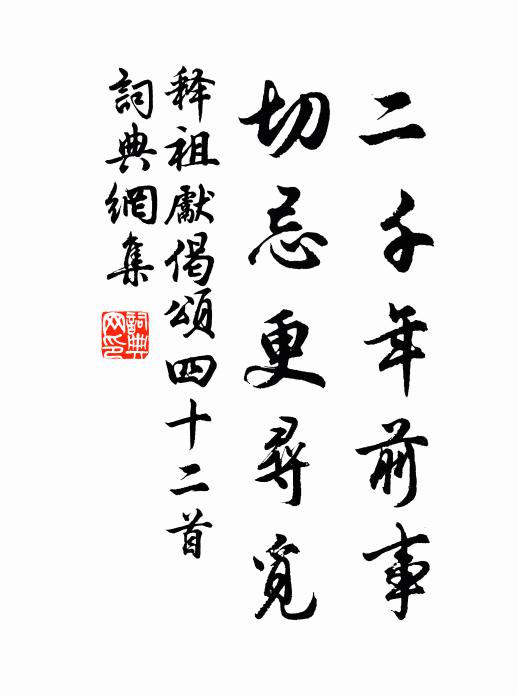 二千年前事
切忌更尋覓
释祖獻偈頌四十二首
詞典網集
詞典
网印